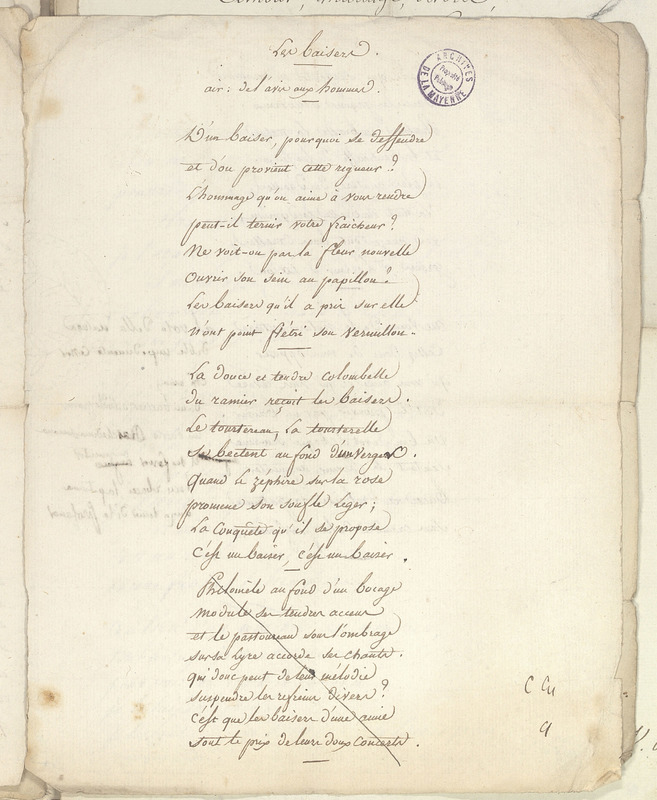 Les baisers.
air : de l'avis aux hommes.
ARCHIVES
DE LA MAYENNE
D'un baiser, pourquoi se deffendre
et d'ou provient cette rigueur ?
L'hommage qu'on aime à vous rendre
peut-il ternir votre fraicheur ?
Ne voit-on pas la fleur nouvelle
Ouvrir son sein au papillon ?
Les baisers qu'il a pris sur elle
n'ont point flétri son vermillon.
La douce et tendre colombelle
du ramier reçoit les baisers.
Le tourtereau, la tourterelle
se bectent au fond d'un verger.
quand le zéphire sur la rose
promene son soufle leger ;
La Conquête qu'il se propose
C'est un baiser, c'est un baiser.
Philomèle au fond d'un bocage
module ses tendres accens
et le pastoureau sous l'ombrage
sur sa lyre accorde ses chants.
qui donc peut de leur mélodie
suspendre les refrains divers ?
C'est que les baisers d'une amie
sont le prix de leurs doux Concerts.